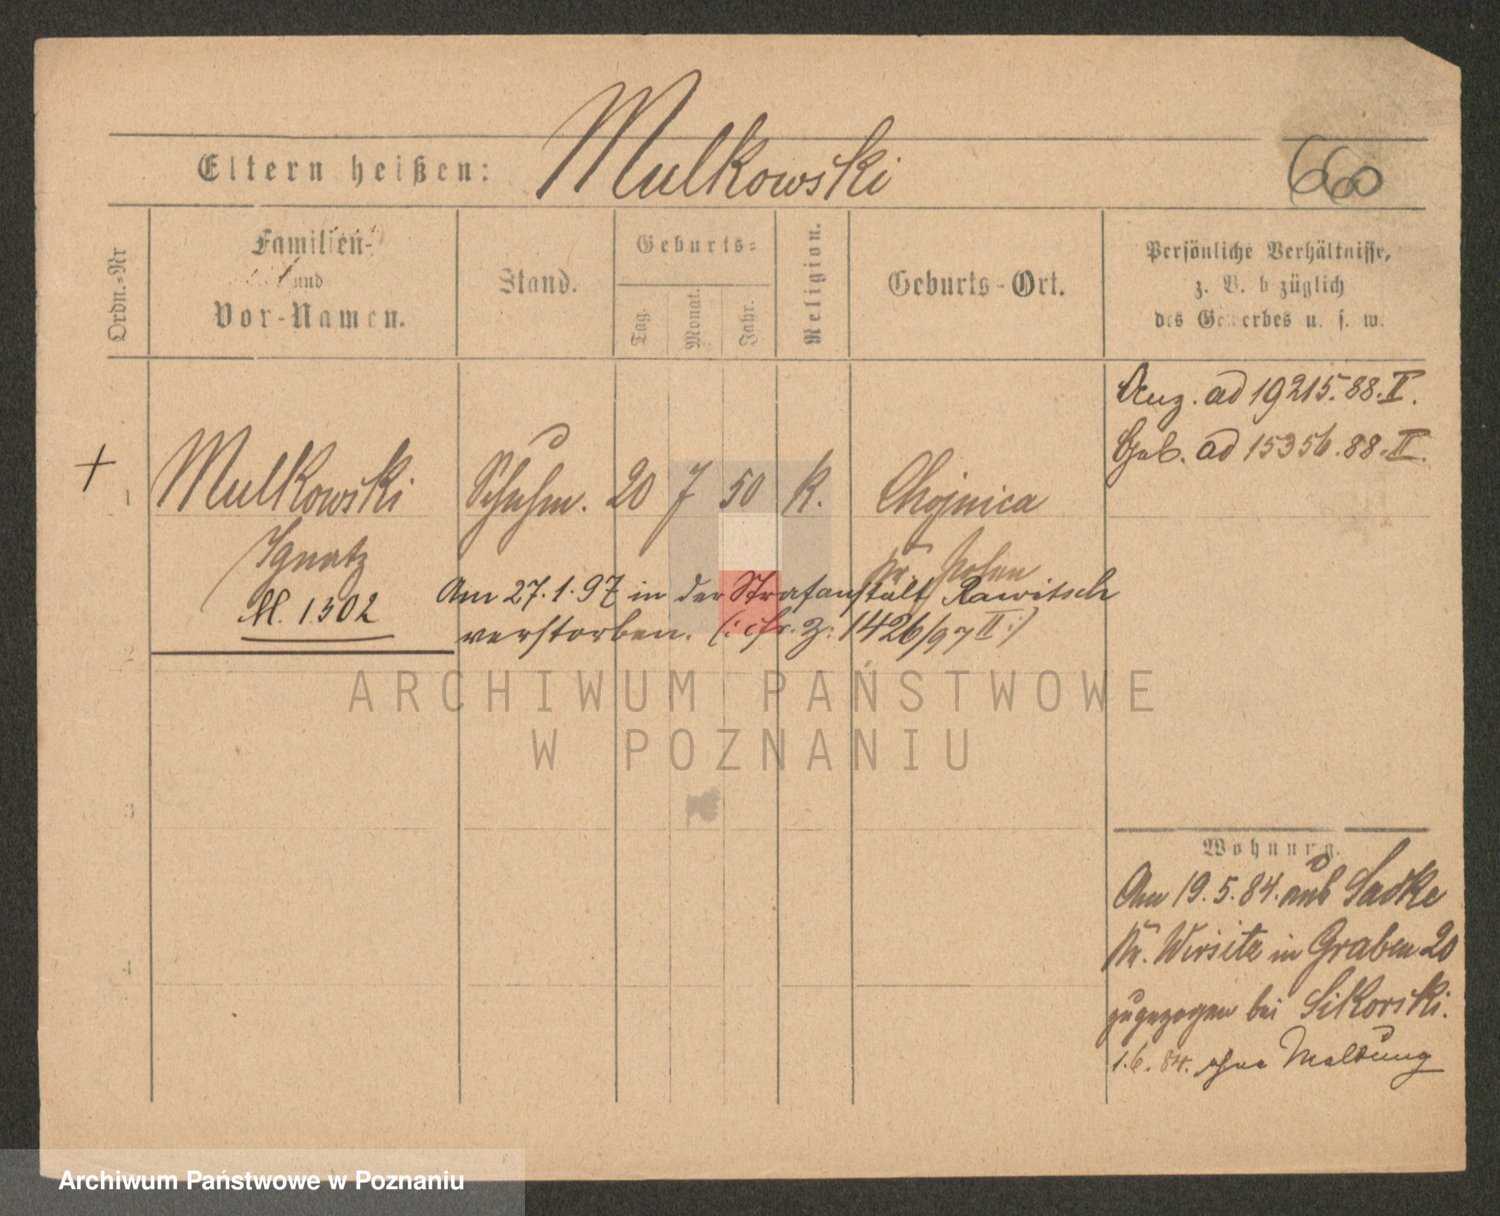 Mulkowski
Eltern heißen:
660
Ordn.-Nr
Familien-
und
Vor-Namen.
Stand.
Geburts-
Tag.
Monat.
Jahr.
Religion.
Geburts-Ort.
Persönliche Verhältnisse,
z. B. bezüglich
des Gewerbes u. s. w.
ad 19215.88.II.
Geb. ad 15356.88.II.
+
1
Mulkowski
Schuhm.
20
7
50
k.
Chojnica
Ignatz
Kr. Posen
M. 1302
Am 27.1.97 in der Strafanstalt Rawitsch
verstorben. (: cfr. Z: 1426/97 II :)
2
ARCHIWUM PAŃSTWOWE
W POZNANIU
3
Wohnung.
Am 19.5.84. aus Sadke
Kr. Wirsitz in Graben 20
zugezogen bei Sikorski.
1.6.84. ohne Meldung
4
Archiwum Państwowe w Poznaniu